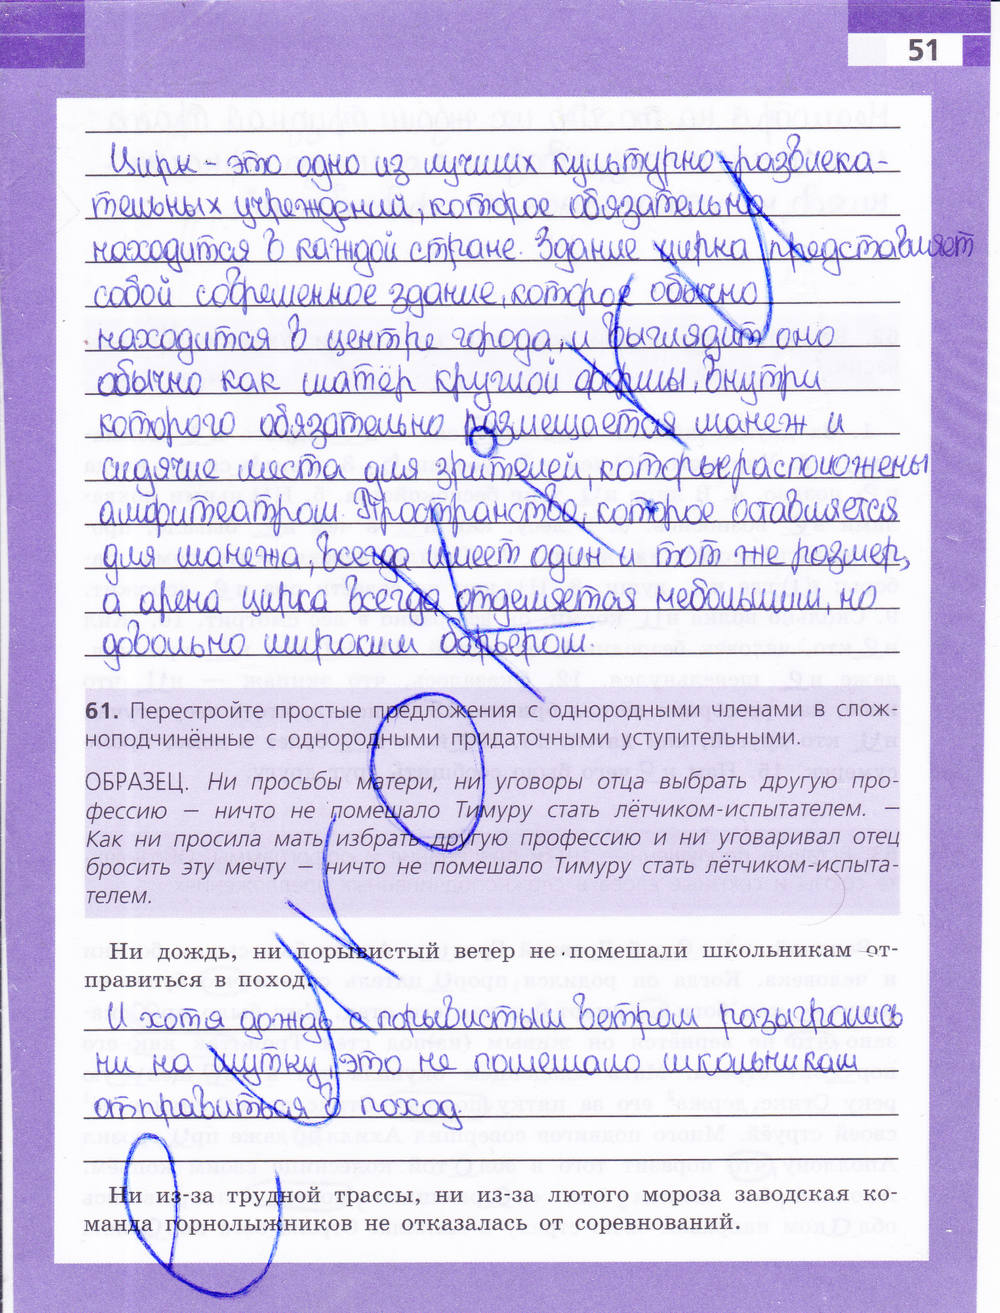 51
Цирк - это одно из лучших культурно-развлека-
тельных учреждений, которое обязательно
находится в каждой стране. Здание цирка представляет
собой современное здание, которое обычно
находится в центре города, и выглядит оно
обычно как шатёр круглой формы, внутри
которого обязательно размещается манеж и
сидячие места для зрителей, которые расположены
амфитеатром. Пространство, которое оставляется
для манежа, всегда имеет один и тот же размер,
а арена цирка всегда отделяется небольшим, но
довольно широким барьером.
61. Перестройте простые предложения с однородными членами в слож-
ноподчинённые с однородными придаточными уступительными.
ОБРАЗЕЦ. Ни просьбы матери, ни уговоры отца выбрать другую про-
фессию — ничто не помешало Тимуру стать лётчиком-испытателем. —
Как ни просила мать избрать другую профессию и ни уговаривал отец
бросить эту мечту — ничто не помешало Тимуру стать лётчиком-испыта-
телем.
Ни дождь, ни порывистый ветер не помешали школьникам от-
правиться в поход.
И хотя дождь с порывистым ветром разыгрались
ни на шутку, это не помешало школьникам
отправиться в поход.
Ни из-за трудной трассы, ни из-за лютого мороза заводская ко-
манда горнолыжников не отказалась от соревнований.